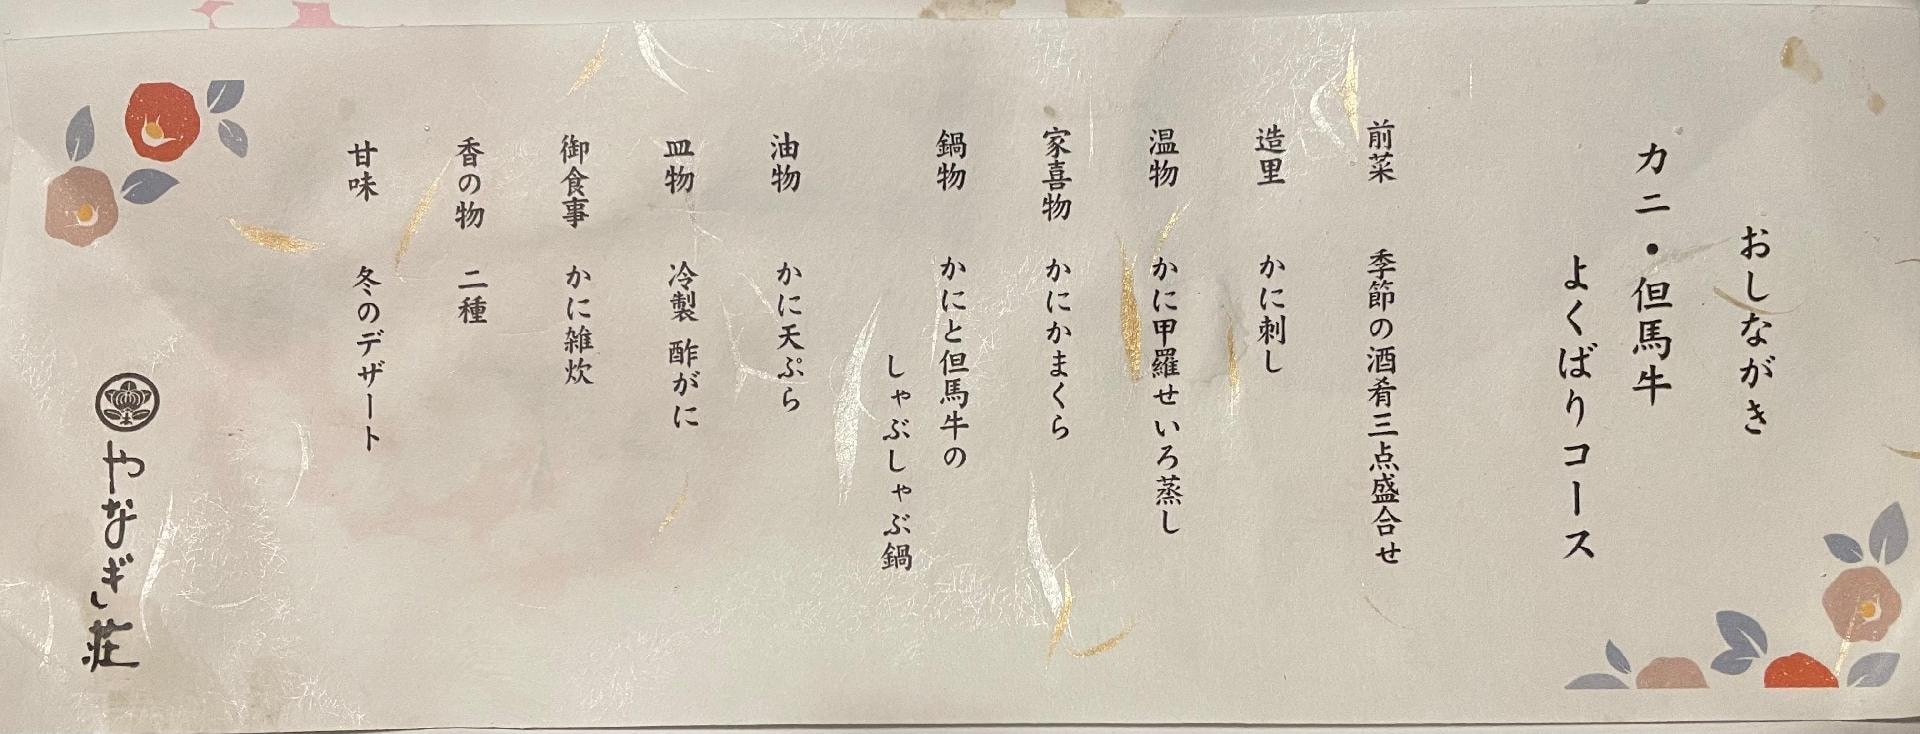 おしながき
カニ・但馬牛
よくばりコース
前菜　季節の酒肴三点盛合せ
造里　かに刺し
温物　かに甲羅せいろ蒸し
家喜物　かにかまくら
鍋物　かにと但馬牛の
しゃぶしゃぶ鍋
油物　かに天ぷら
皿物　冷製 酢がに
御食事　かに雑炊
香の物　二種
甘味　冬のデザート
やなぎ荘